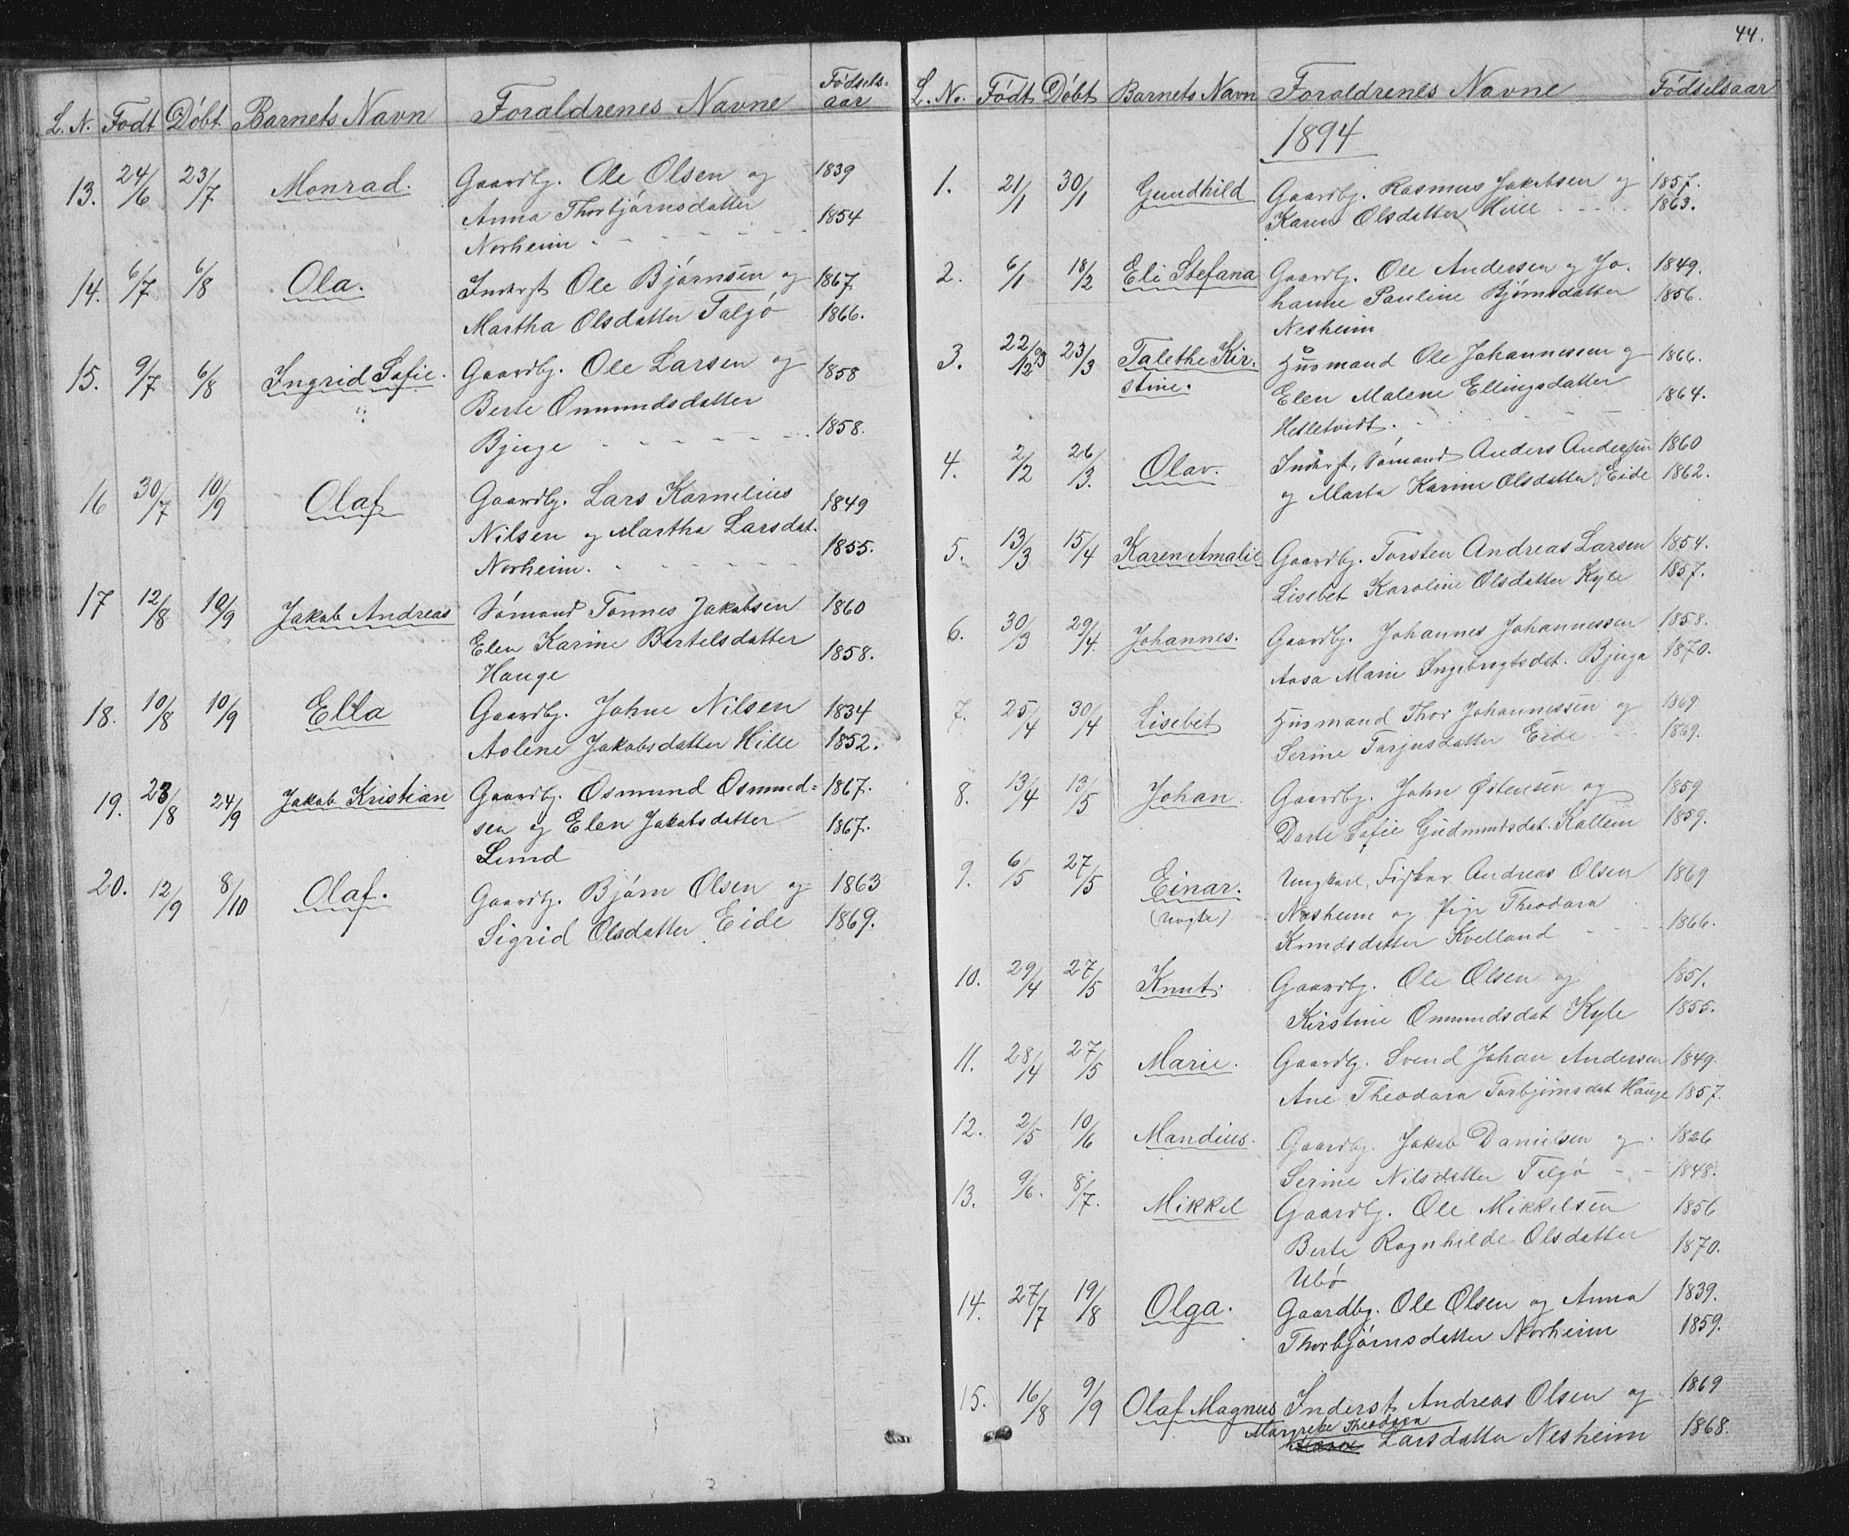 L. N. Födt Döbt Barnets Navn Forældrenes Navne Födsels-
aar
13. 24/6 23/7 Monrad. Gaardbr. Ole Olsen og 1839
Anna Thorbjörnsdatter 1854
Norheim
14. 6/7 6/8 Ola. Inderst Ole Björnsen og 1867.
Martha Olsdatter Talgö 1866.
15. 9/7 6/8 Ingrid Sofie. Gaardbr. Ole Larsen og 1858
Berte Omundsdatter
Bjuge 1858.
16 30/7 10/9 Olaf Gaardbr. Lars Kornelius 1849
Nilsen og Martha Larsdat. 1855.
Norheim.
17 12/8 10/9 Jakob Andreas Sömand Tönnes Jakobsen 1860
Elen Karine Bertelsdatter 1858.
Hauge
18. 10/8 10/9 Ella Gaardbr. Johne Nilsen 1834
Aolene Jakobsdatter Hille 1852.
19. 23/8 24/9 Jakob Kristian Gaardbr. Osmund Osmund- 1867.
sen og Elen Jakobsdatter 1867.
Lund
20. 12/9 8/10 Olaf. Gaardbr. Björn Olsen og 1863
Sigrid Olsdatter Eide 1869.
44.
L. No. Födt Döbt Barnets Navn Forældrenes Navne Födselsaar
1894
1. 21/1 30/1 Gundhild Gaardbr. Rasmus Jakobsen og 1857.
Karen Olsdatter Hille 1863.
2. 6/1 18/2 Eli Stefana Gaardbr. Ole Andersen og Jo- 1849.
hanne Pauline Björnsdatter 1856.
Nesheim
3. 22/12 93 23/3 Talethe Kir- Husmand Ole Johannessen og 1866.
stine. Elen Malene Ellingsdatter 1864.
Hetletvedt.
4. 2/12 26/3. Olav. Inderst, Sömand Anders Andersen 1860
og Marta Karine Olsdatter Eide 1862.
5. 13/3 15/4 Karen Amalie Gaardbr. Torsten Andreas Larsen 1854.
Lisebet Karoline Olsdatter Kyle 1857.
6. 30/3 29/4 Johannes. Gaardbr. Johannes Johannessen 1858.
Aasa Marie Ingebregtsdat. Bjuge 1870.
7. 25/4 30/4 Lisebet Husmand Thor Johannessen og 1869
Serine Tarjusdatter Eide 1869.
8. 13/4 13/5 Johan. Gaardbr. John Östensen og 1859
Dorte Sofie Gudmundsdat. Kallein 1859.
9. 6/5 27/5 Einar. Ungkarl, Fisker Andreas Olsen 1869
(uægte) Nesheim og Pige Theodora
Knudsdatter Kvelland 1866.
10. 29/4 27/5 Knut. Gaardbr. Ole Olsen og 1851.
Kirstine Omundsdat Kyle 1855.
11. 28/4 27/5 Marie. Gaardbr. Svend Johan Andersen 1849.
Ane Theodora Torbjörnsdat Hauge 1857.
12. 2/5 10/6 Mandius. Gaardbr. Jakob Danielsen og 1826
Serine Nilsdatter Talgö 1848.
13. 9/6. 8/7. Mikkel Gaardbr. Ole Mikkelsen 1856
Berte Ragnhilde Olsdatter 1870.
Ubö
14. 27/7 19/8 Olga. Gaardbr. Ole Olsen og Anna 1839.
Thorbjörnsdatter Norheim 1859.
15. 16/8 9/9 Olaf Magnus Inderst Andreas Olsen og 1869
Margrete Theodora
Larsdatter Nesheim 1868.